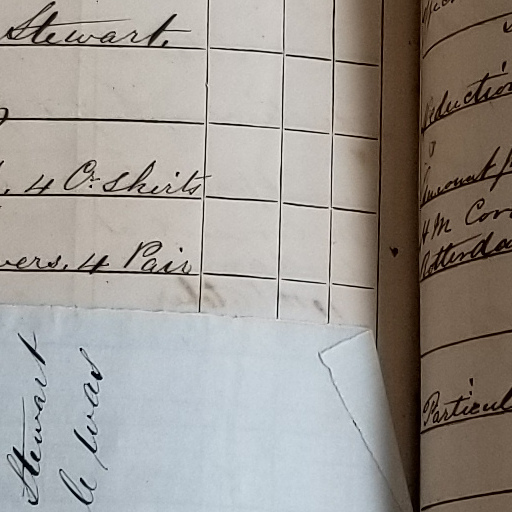 Stewart.
4 Or. Shirts
vers. 4 Pair
Stewart
le was
eduction
Amount f
HM Con
Rotterda
Particul